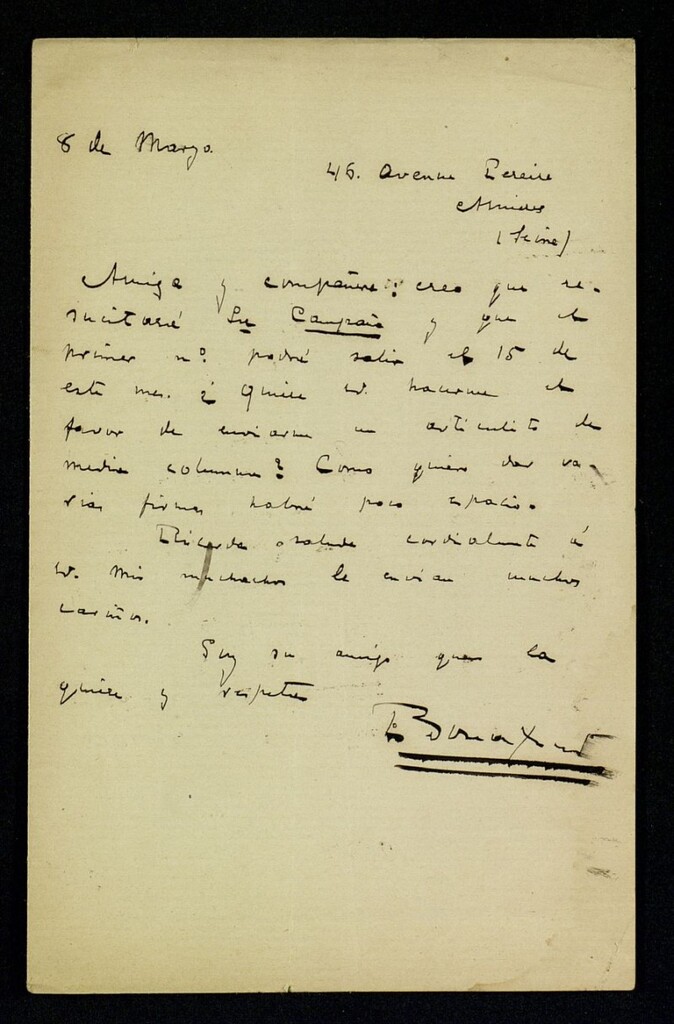 8 de Marzo.
45. Avenue Pereire
Asnieres
(Seine)
Amiga y compañera: creo que re-
sucitaré La Campaña y que el
primer nº. podrá salir el 15 de
este mes. ¿Quiere Vd. hacerme el
favor de enviarme un articulito de
media columna? Como quiero dar va-
rias firmas habrá poco espacio.
Ricarda saluda cordialmente á
Vd. Mis muchachos le envían muchos
cariños.
Soy su amigo que la
quiere y respeta
Bonafoux